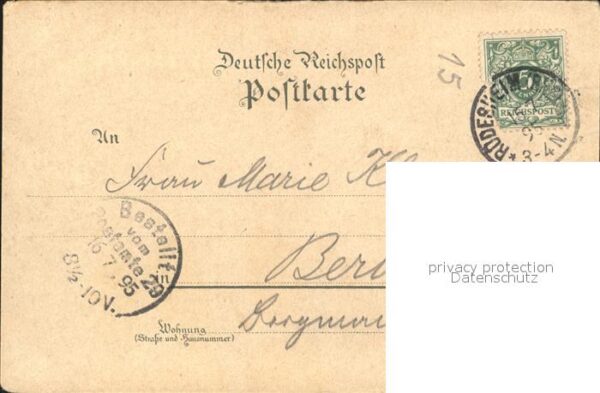 Deutsche Reichspost
Postkarte
15
5
REICHSPOST
RÜDESHEIM
95
3-4 N
An
Frau Marie Kl
Bestellt
vom
Postamte 29
16.7.95
8½-10 V.
in
Berl
Bergman
Wohnung
(Straße und Hausnummer)
privacy protection
Datenschutz